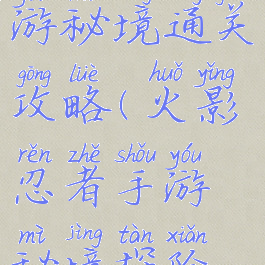 游秘境通关
gōng lüè huǒ yǐng
攻略(火影
rěn zhě shǒu yóu
忍者手游
mì jìng tàn xiǎn
秘境探险